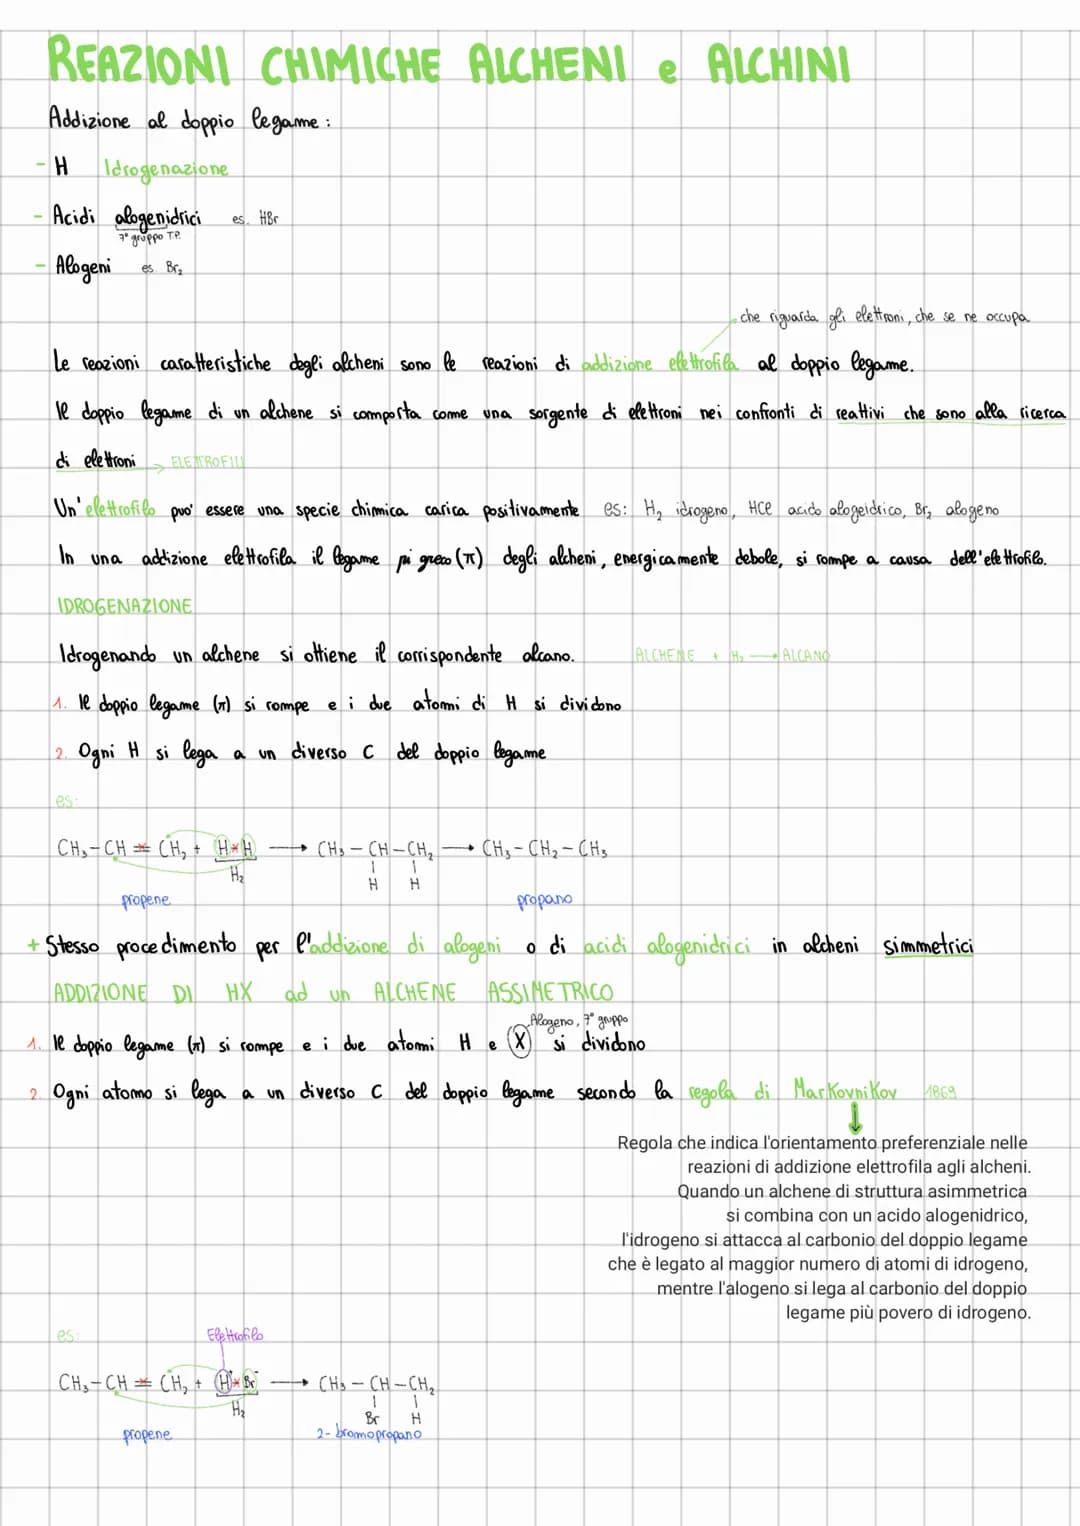 REAZIONI CHIMICHE ALCHENI e ALCHINI
Addizione al doppio legame:
- H Idrogenazione
- Acidi alogenidrici es. HBr
7° gruppo T.P.
- Alogeni es. Br₂
che riguarda gli elettroni, che se ne occupa
Le reazioni caratteristiche degli alcheni sono le reazioni di addizione elettrofila al doppio legame.
Il doppio legame di un alchene si comporta come una sorgente di elettroni nei confronti di reattivi che sono alla ricerca
di elettroni → ELETTROFILI
Un'elettrofilo puo' essere una specie chimica carica positivamente es: H₂ idrogeno, HCl acido alogeidrico, Br₂ alogeno
In una addizione elettrofila il legame pi greco (π) degli alcheni, energicamente debole, si rompe a causa dell'elettrofilo.
IDROGENAZIONE
Idrogenando un alchene si ottiene il corrispondente alcano. ALCHENE + H₂ → ALCANO
1. Il doppio legame (π) si rompe e i due atomi di H si dividono
2. Ogni H si lega a un diverso C del doppio legame
es:
CH₃-CH = CH₂ + H×H → CH₃-CH-CH₂ → CH₃-CH₂-CH₃
H₂ H H
propene propano
+ Stesso procedimento per l'addizione di alogeni o di acidi alogenidrici in alcheni simmetrici
ADDIZIONE DI HX ad un ALCHENE ASSIMETRICO
Alogeno, 7° gruppo
1. Il doppio legame (π) si rompe e i due atomi H e X si dividono
2. Ogni atomo si lega a un diverso C del doppio legame secondo la regola di MarKovniKov 1869
Regola che indica l'orientamento preferenziale nelle
reazioni di addizione elettrofila agli alcheni.
Quando un alchene di struttura asimmetrica
si combina con un acido alogenidrico,
l'idrogeno si attacca al carbonio del doppio legame
che è legato al maggior numero di atomi di idrogeno,
mentre l'alogeno si lega al carbonio del doppio
legame più povero di idrogeno.
es: Elettrofilo
CH₃-CH = CH₂ + H⁺×Br⁻ → CH₃-CH-CH₂
H₂ Br H
propene 2-bromopropano